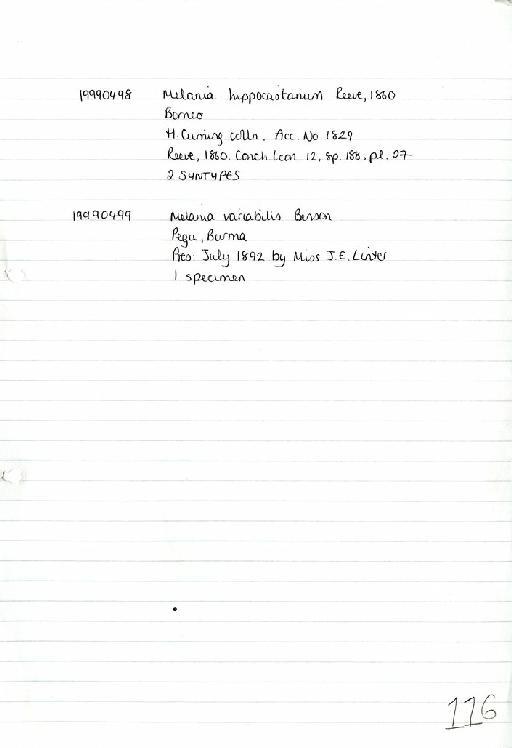 19990498 Melania hippocastanum Reeve, 1860
Borneo
H. Cuming colln. Acc. No 1829
Reeve, 1860. Conch. Icon. 12, sp. 188, pl. 27
2 SYNTYPES
19990499 Melania variabilis Benson
Pegu, Burma
Pres July 1892 by Miss J.E. Linter
1 specimen
116